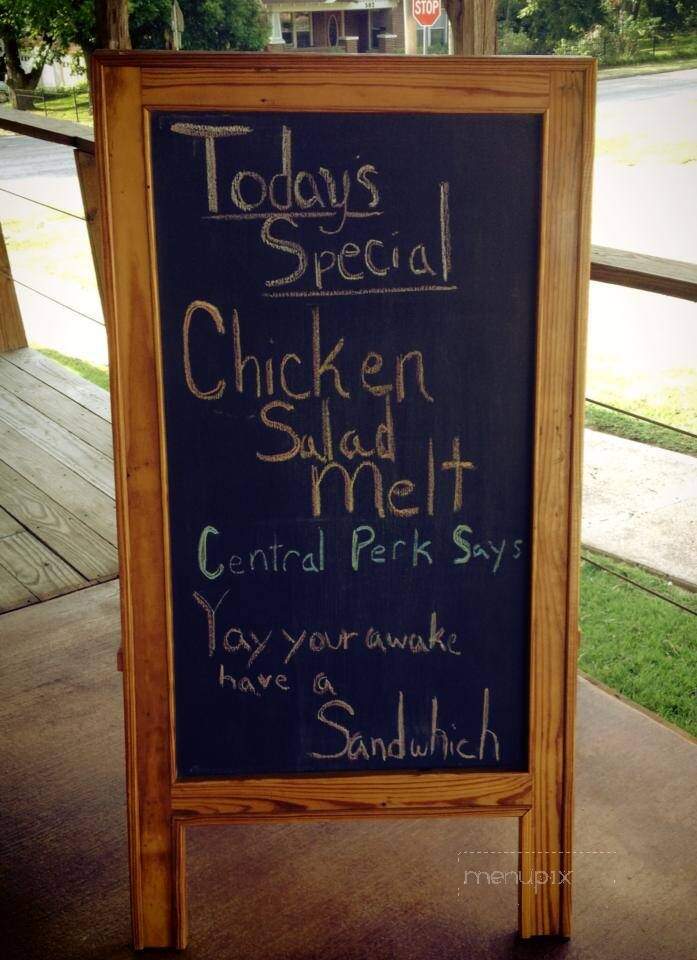 582
STOP
Today's
Special
Chicken
Salad
Melt
Central Perk Says
Yay your awake
have a
Sandwhich
menupix